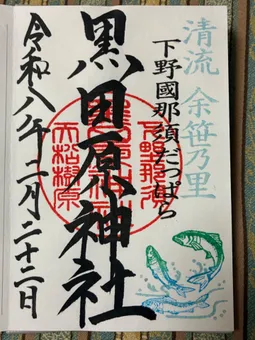 清流 余笹乃里
下野國那須だっぱら
黒田原神社
令和八年二月二十二日